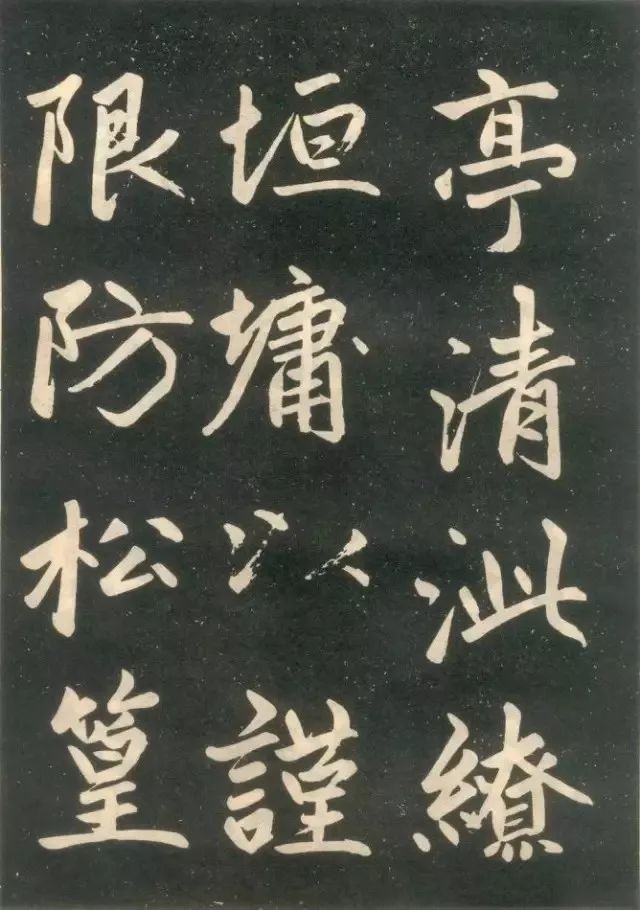 亭清泚繚
垣墉以謹
限防松篁